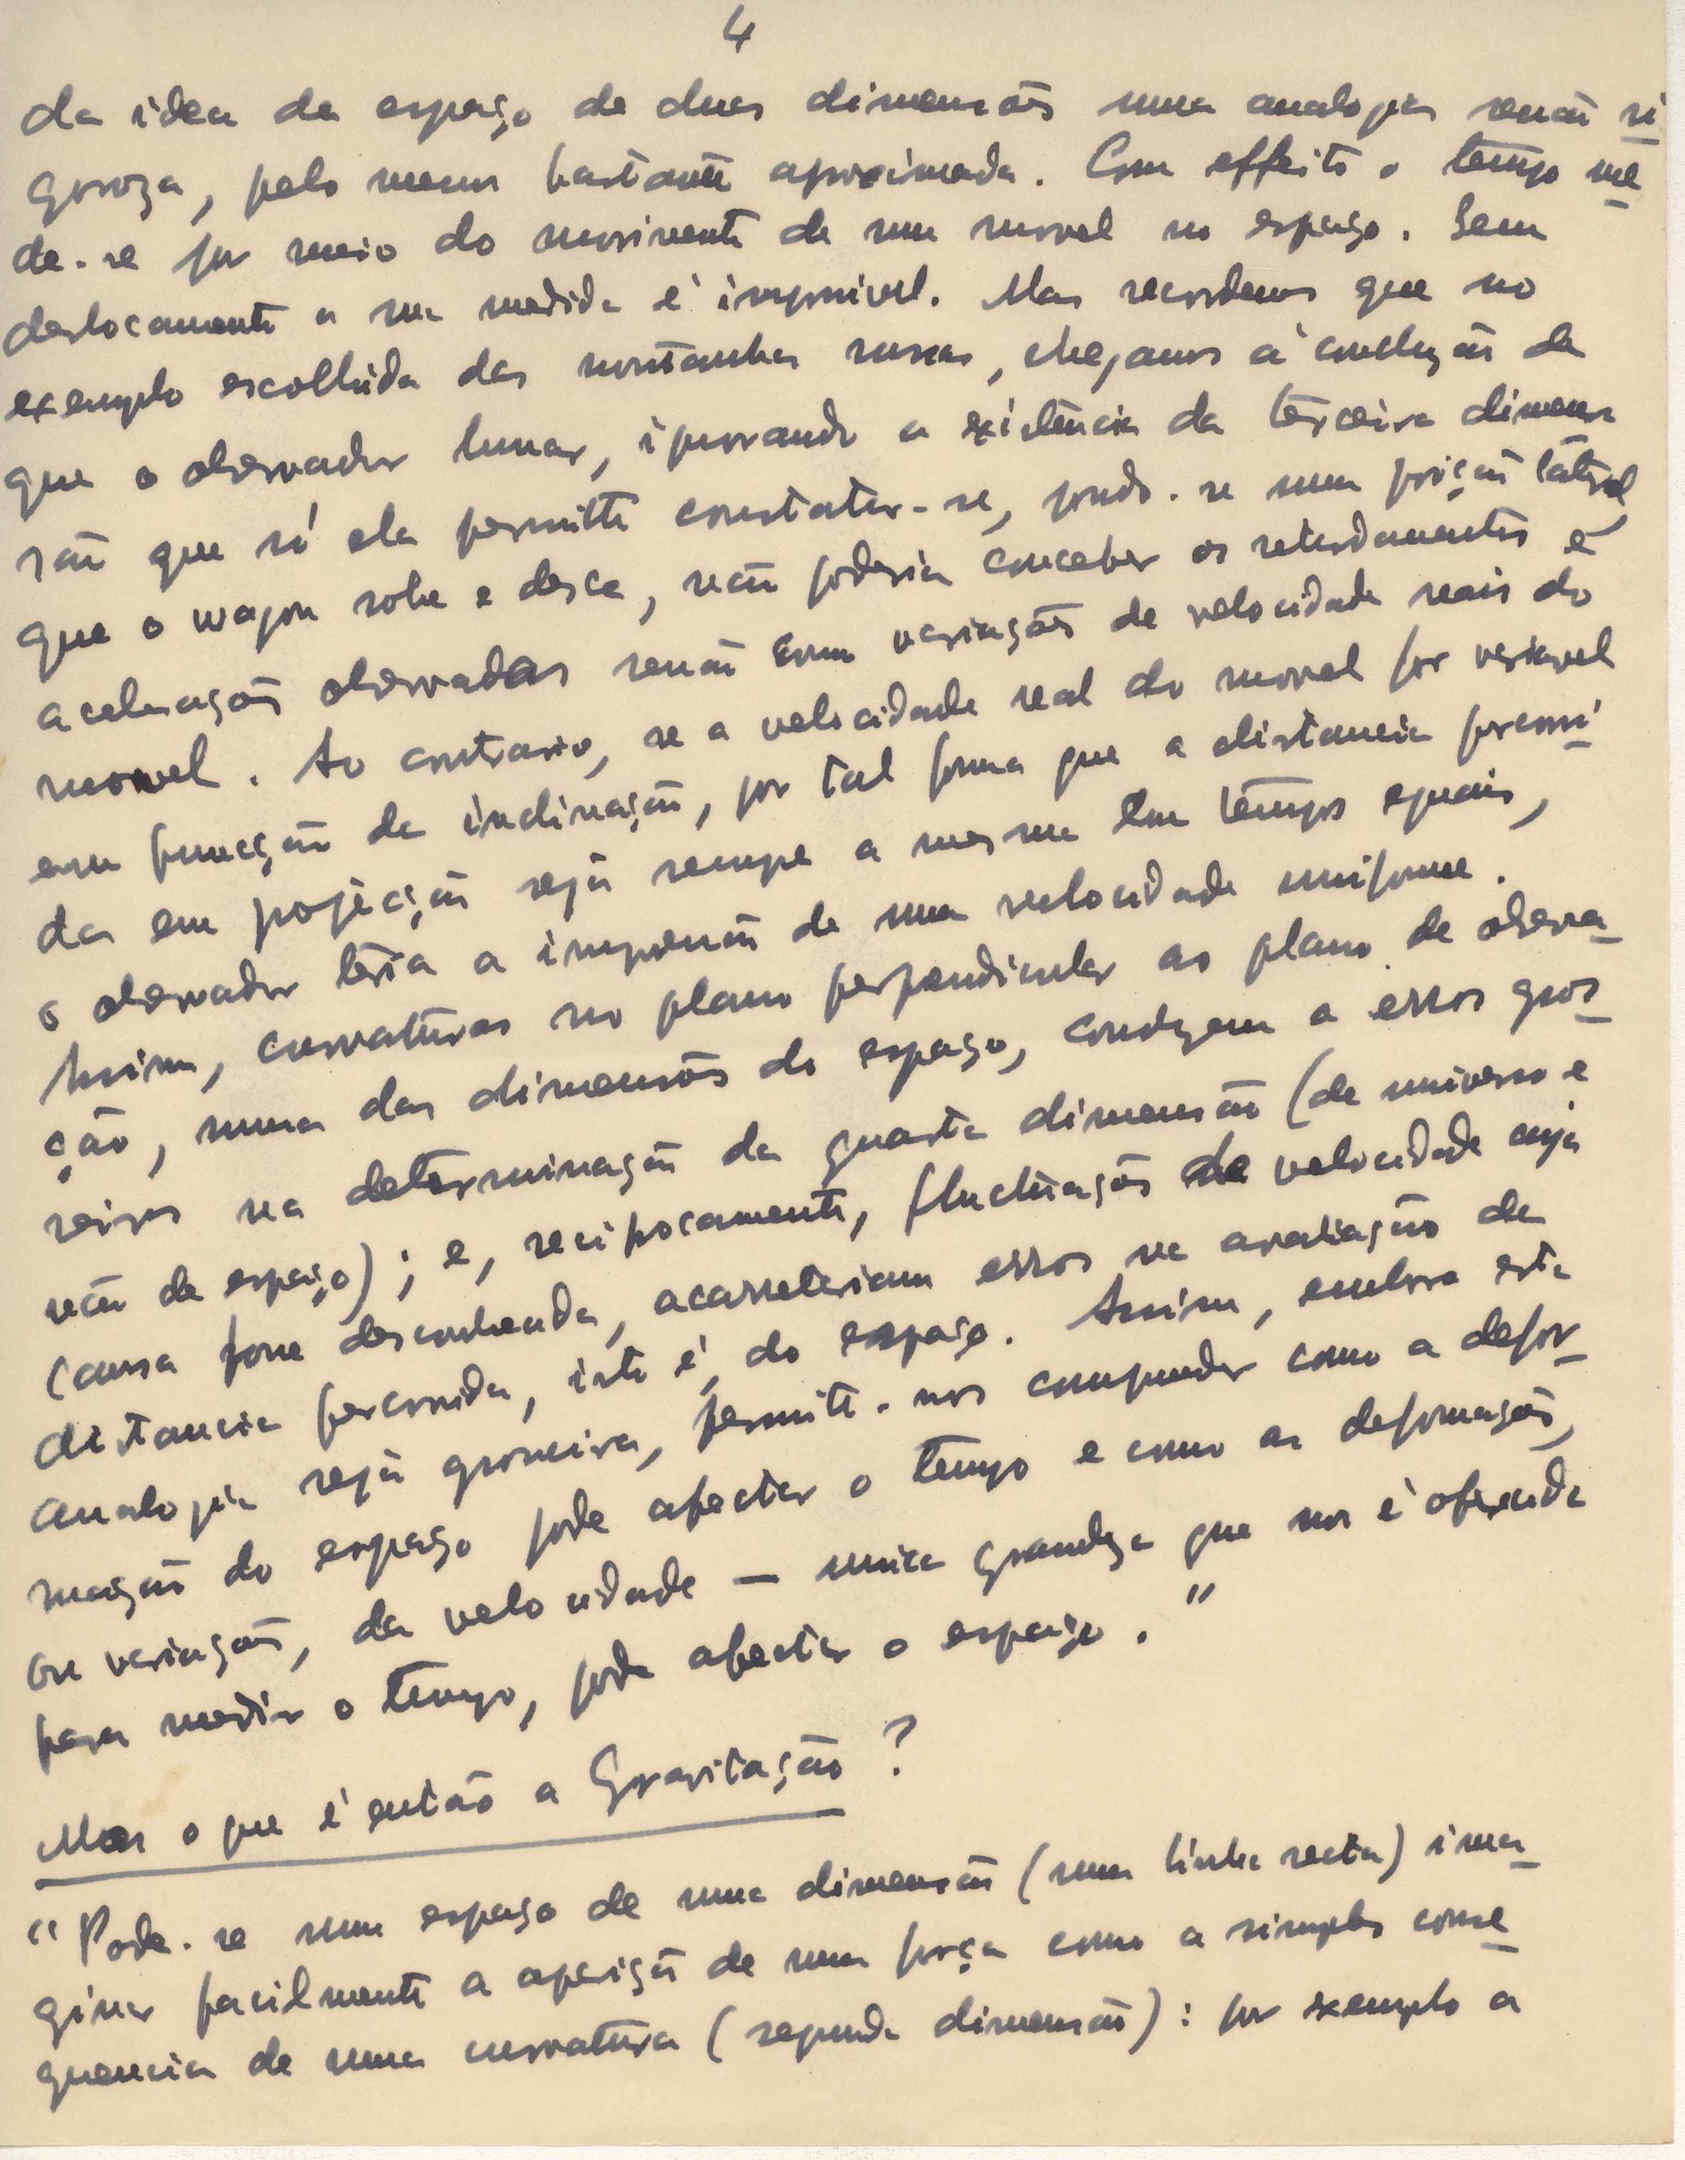 4
da idea de espaço de duas dimensões uma analogia senão ri
goroza, pelo menos bastante aproximada. Com effeito o tempo me
de-se por meio do movimento de um movel no espaço. Sem
deslocamento a sua medida é impossivel. Mas recordemos que no
exemplo escolhido das montanhas russas, chegamos á conclusão de
que o observador lunar, ignorando a existencia da terceira dimen
são que só ela permitte constatar-se, pondo-se numa posição lateral,
que o wagon sobe e desce, não poderia conceber os retardamentos e
acelerações observadas senão como variações de velocidade reais do
movel. Ao contrario, se a velocidade real do movel for variavel
em funcção da inclinação, por tal forma que a distancia percorri
da em projecção seja sempre a mesma em tempos eguais,
o observador teria a impressão de uma velocidade uniforme.
Assim, curvaturas no plano perpendicular ao plano de observa
ção, numa das dimensões do espaço, conduzem a erros gros
seiros na determinação da quarta dimensão (de universo e
não de espaço); e, reciprocamente, fluctuações de velocidade cuja
causa fosse desconhecida, acarretariam erros na avaliação da
distancia percorrida, isto é, do espaço. Assim, embora esta
analogia seja grosseira, permitte-nos comprender como a defor
mação do espaço pode afectar o tempo e como as deformações,
ou variações, da velocidade — unica grandeza que nos é oferecida
para medir o tempo, pode afectar o espaço."
Mas o que é então a Gravitação?
"Pode-se num espaço de uma dimensão (uma linha recta) ima
ginar facilmente a aparição de uma força como a simples conse
quencia de uma curvatura (segunda dimensão): por exemplo a